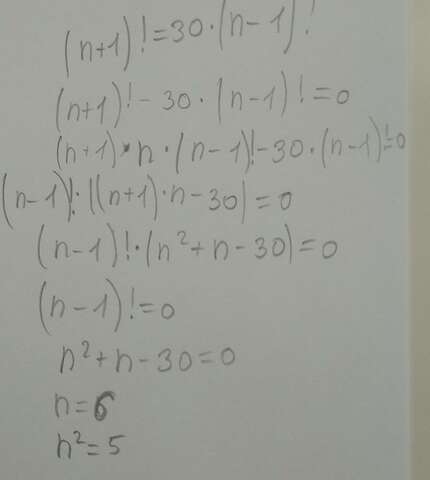 (n+1)!=30·(n-1)!
(n+1)!-30·(n-1)!=0
(n+1)·n·(n-1)!-30·(n-1)!=0
(n-1)!·((n+1)·n-30)=0
(n-1)!·(n²+n-30)=0
(n-1)!=0
n²+n-30=0
n=6
n²=5